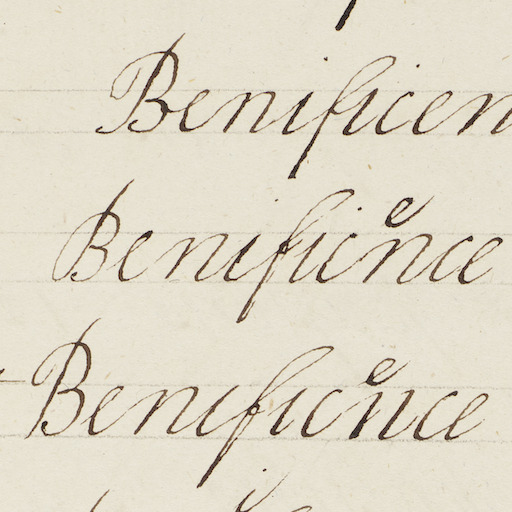 Benificen
Benificence
Benificence